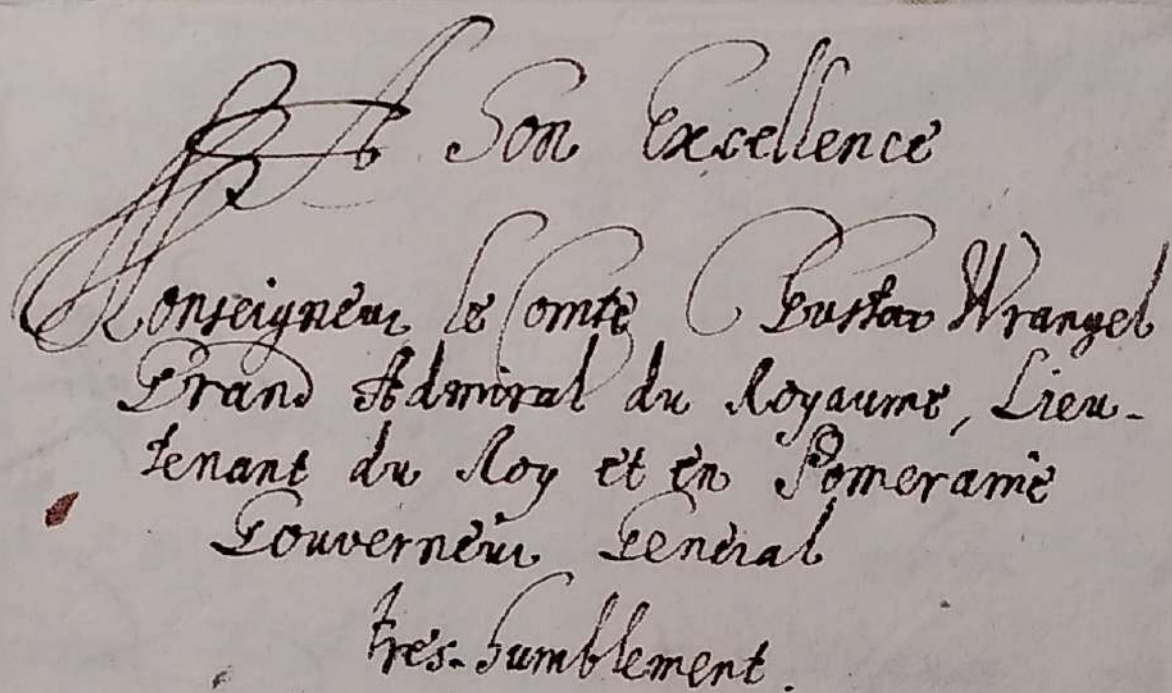 A Son Excellence
Monseigneur le Comte Gustav Wrangel
Grand Admiral du Royaume, Lieu-
tenant du Roy et en Pomeranie
Gouverneur General
tres-humblement.